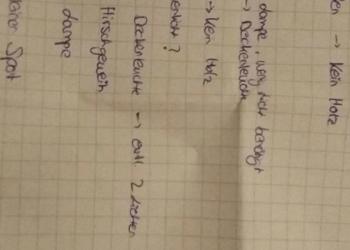 → Kein Holz
lampe, wenig benötigt
→ Deckenleuchte
→ Kein Holz
Deckenleuchte → evtl. 2 Lichter
Hirschgeweih
Lampe
Spot